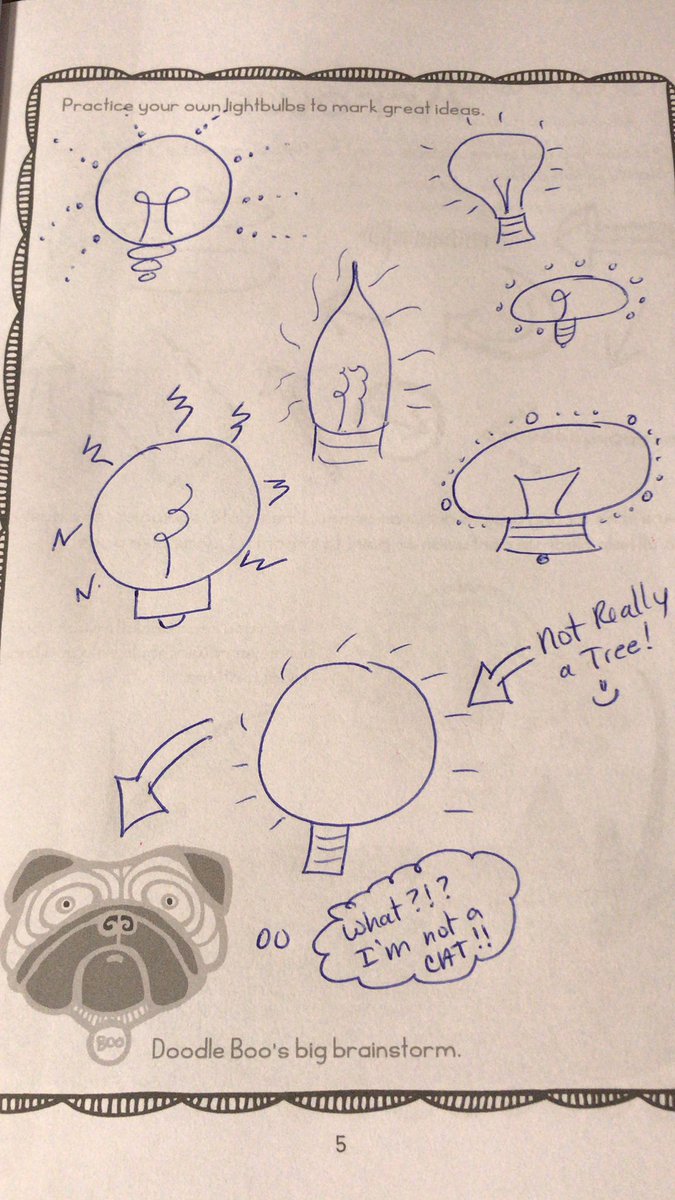 Practice your own lightbulbs to mark great ideas.
Not Really
a Tree!
What?!?
I'm not a
CAT!!
BOO
Doodle Boo's big brainstorm.
5